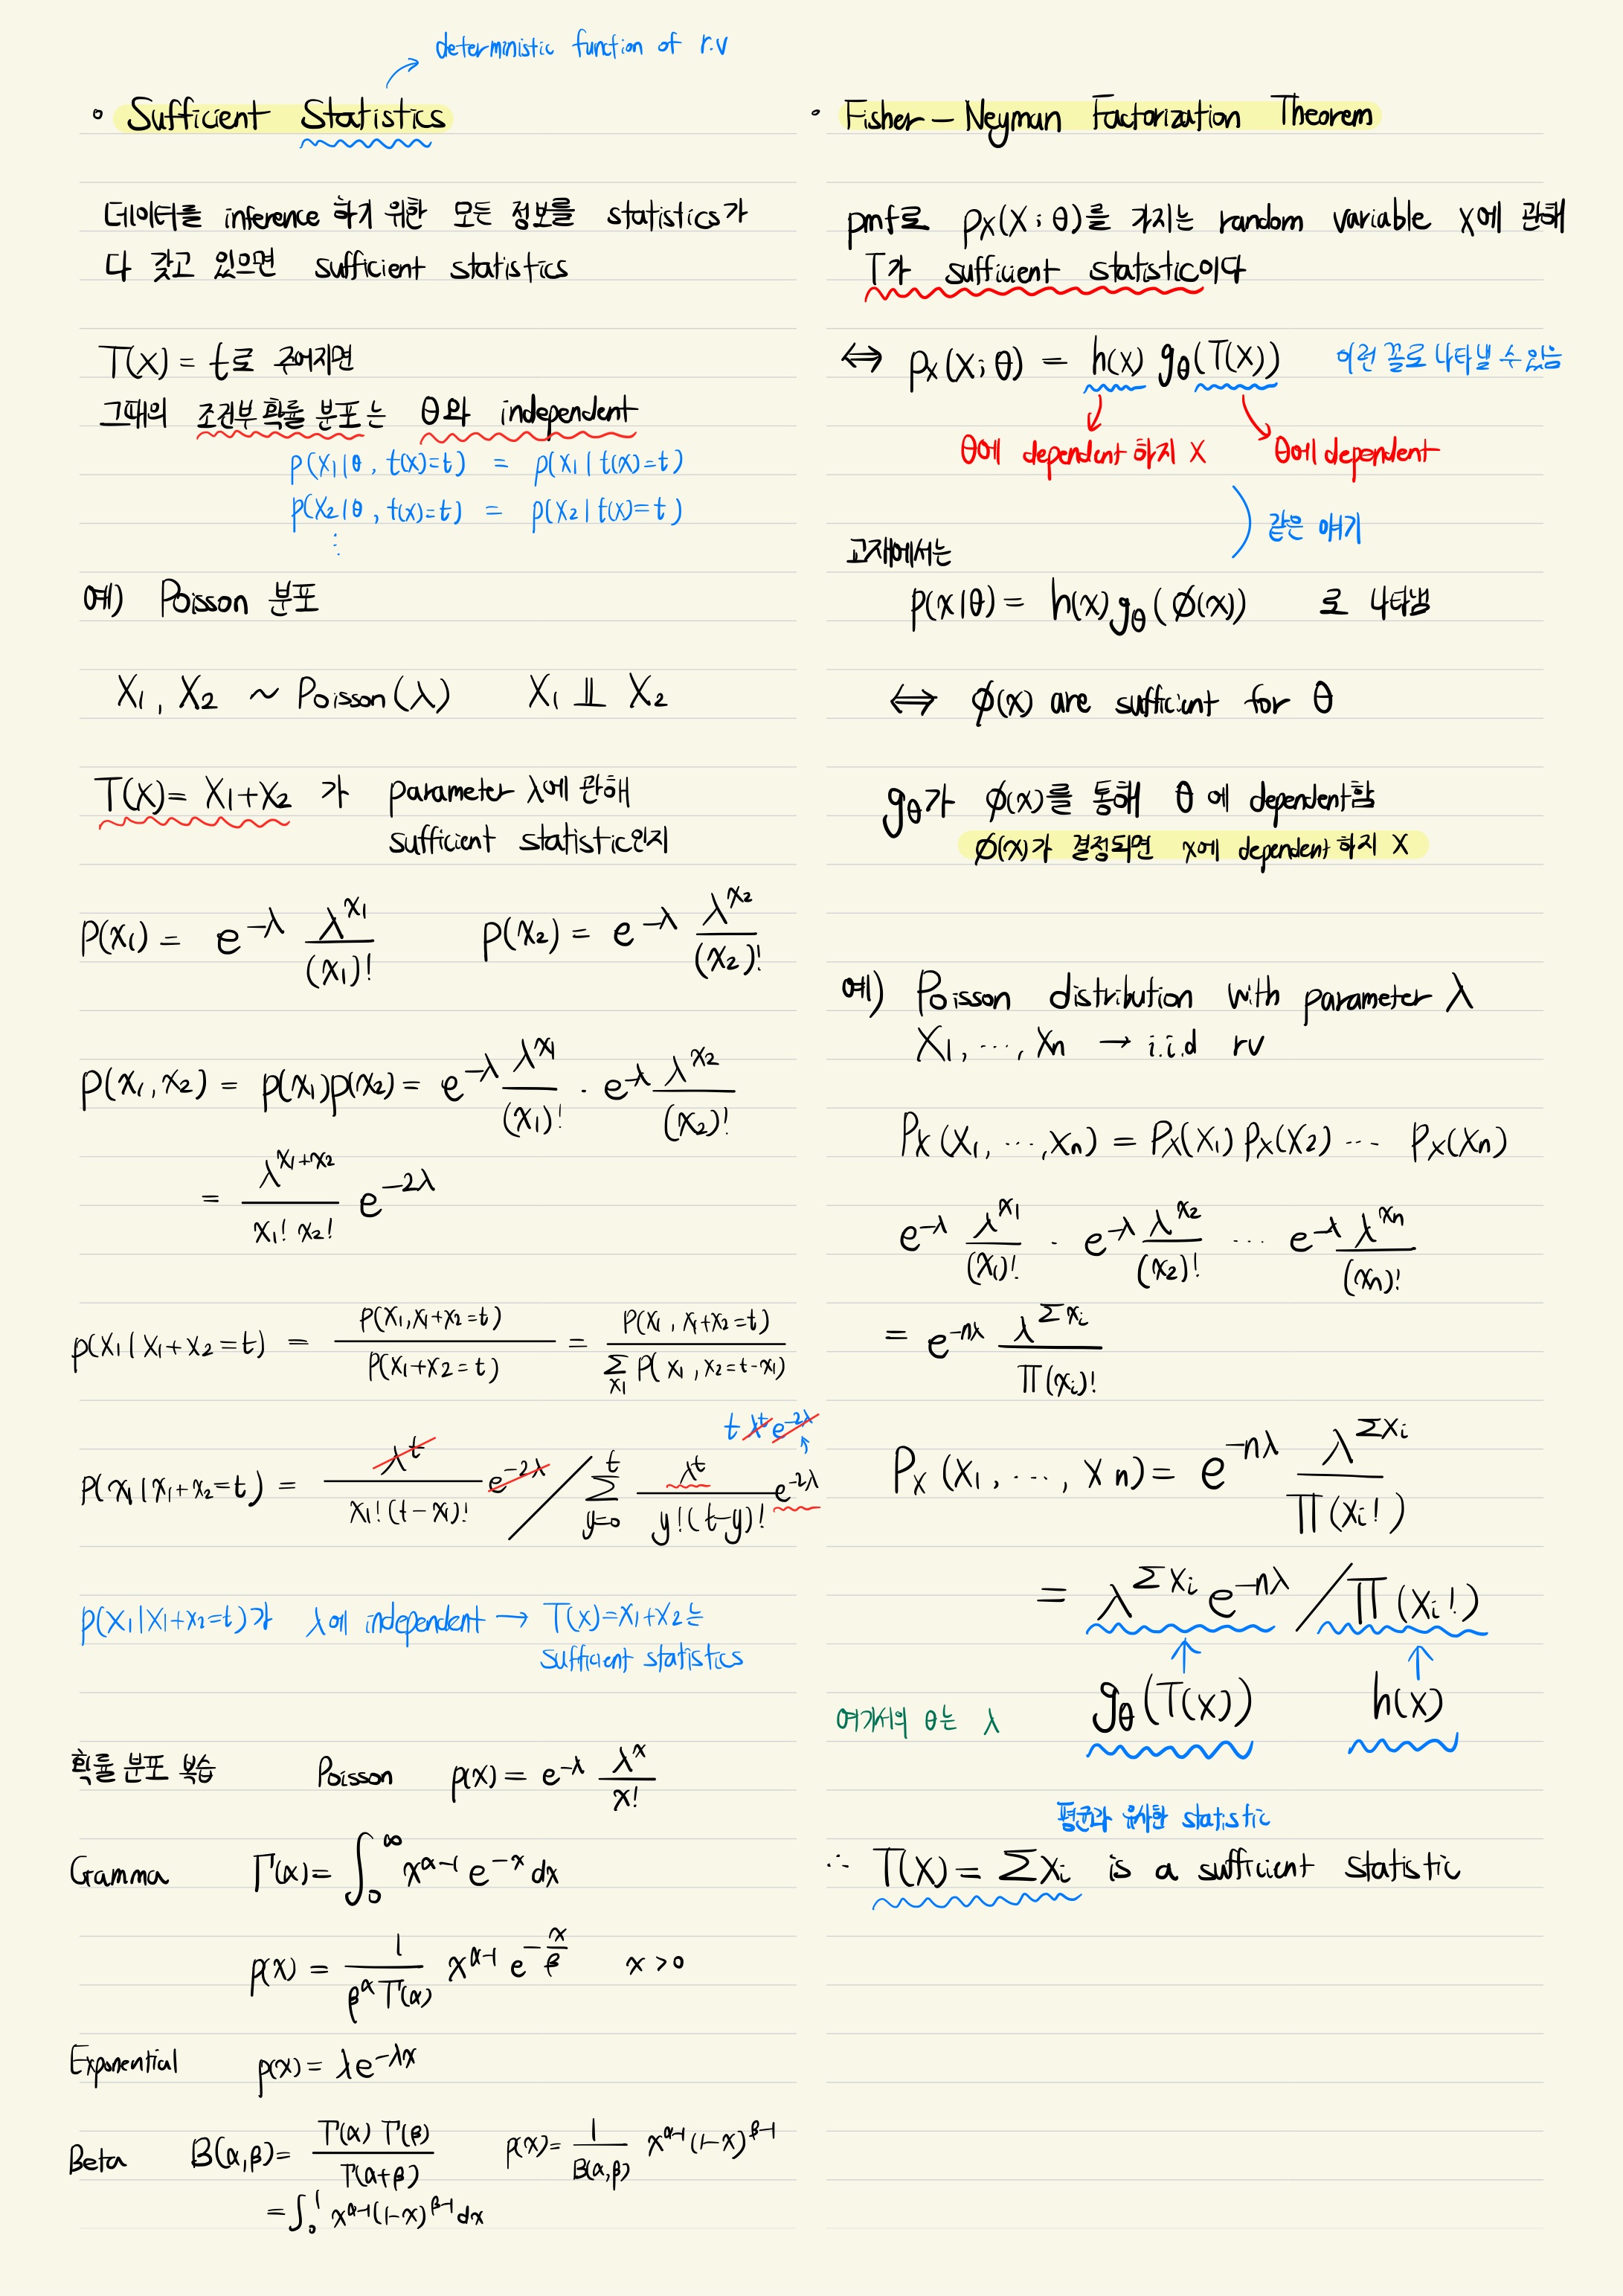 deterministic function of r.v
◦ Sufficient Statistics
데이터를 inference 하기 위한 모든 정보를 statistics가
다 갖고 있으면 sufficient statistics
T(X) = t로 주어지면
그때의 조건부 확률 분포는 θ와 independent
p(x₁|θ, t(x)=t) = p(x₁|t(x)=t)
p(x₂|θ, t(x)=t) = p(x₂|t(x)=t)
⋮
예) Poisson 분포
X₁, X₂ ~ Poisson(λ) X₁ ⫫ X₂
T(X) = X₁+X₂ 가 parameter λ에 관해
sufficient statistic인지
p(x₁) = e^{-λ} λ^{x₁}/(x₁)! p(x₂) = e^{-λ} λ^{x₂}/(x₂)!
p(x₁,x₂) = p(x₁)p(x₂) = e^{-λ} λ^{x₁}/(x₁)! · e^{-λ} λ^{x₂}/(x₂)!
= λ^{x₁+x₂}/(x₁! x₂!) e^{-2λ}
p(x₁|x₁+x₂=t) = p(x₁,x₁+x₂=t)/p(x₁+x₂=t) = p(x₁, x₁+x₂=t)/∑_{x₁} p(x₁, x₂=t-x₁)
t λ^t e^{-2λ}
p(x₁|x₁+x₂=t) = λ^t/(x₁!(t-x₁)!) e^{-2λ} / ∑_{y=0}^{t} λ^t/(y!(t-y)!) e^{-2λ}
p(x₁|x₁+x₂=t)가 λ에 independent → T(x)=x₁+x₂는
sufficient statistics
확률 분포 복습 Poisson p(x) = e^{-λ} λ^x/x!
Gramma Γ(α) = ∫₀^∞ x^{α-1} e^{-x} dx
p(x) = 1/(β^α Γ(α)) x^{α-1} e^{-x/β} x>0
Exponential p(x) = λe^{-λx}
Beta B(α,β) = Γ(α)Γ(β)/Γ(α+β) p(x) = 1/B(α,β) x^{α-1}(1-x)^{β-1}
= ∫₀¹ x^{α-1}(1-x)^{β-1} dx
◦ Fisher – Neyman Factorization Theorem
pmf로 p_X(X;θ)를 가지는 random variable X에 관해
T가 sufficient statistic이다
⇔ p_X(X;θ) = h(x) g_θ(T(x)) 이런 꼴로 나타낼 수 있음
θ에 dependent 하지 X θ에 dependent
같은 얘기
교재에서는
p(x|θ) = h(x)g_θ(ϕ(x)) 로 나타냄
⇔ ϕ(x) are sufficient for θ
g_θ가 ϕ(x)를 통해 θ에 dependent함
ϕ(x)가 결정되면 x에 dependent 하지 X
예) Poisson distribution with parameter λ
X₁, ⋯, Xn → i.i.d rv
P_X(X₁, ⋯, Xn) = P_X(X₁)P_X(X₂) ⋯ P_X(Xn)
e^{-λ} λ^{x₁}/(x₁)! · e^{-λ} λ^{x₂}/(x₂)! ⋯ e^{-λ} λ^{xn}/(xn)!
= e^{-nλ} λ^{Σxi}/Π(xi)!
P_X(X₁, ⋯, Xn) = e^{-nλ} λ^{Σxi}/Π(xi!)
= λ^{Σxi} e^{-nλ} / Π(xi!)
g_θ(T(x)) h(x)
여기서의 θ는 λ
평균과 유사한 statistic
∴ T(X) = Σxi is a sufficient statistic